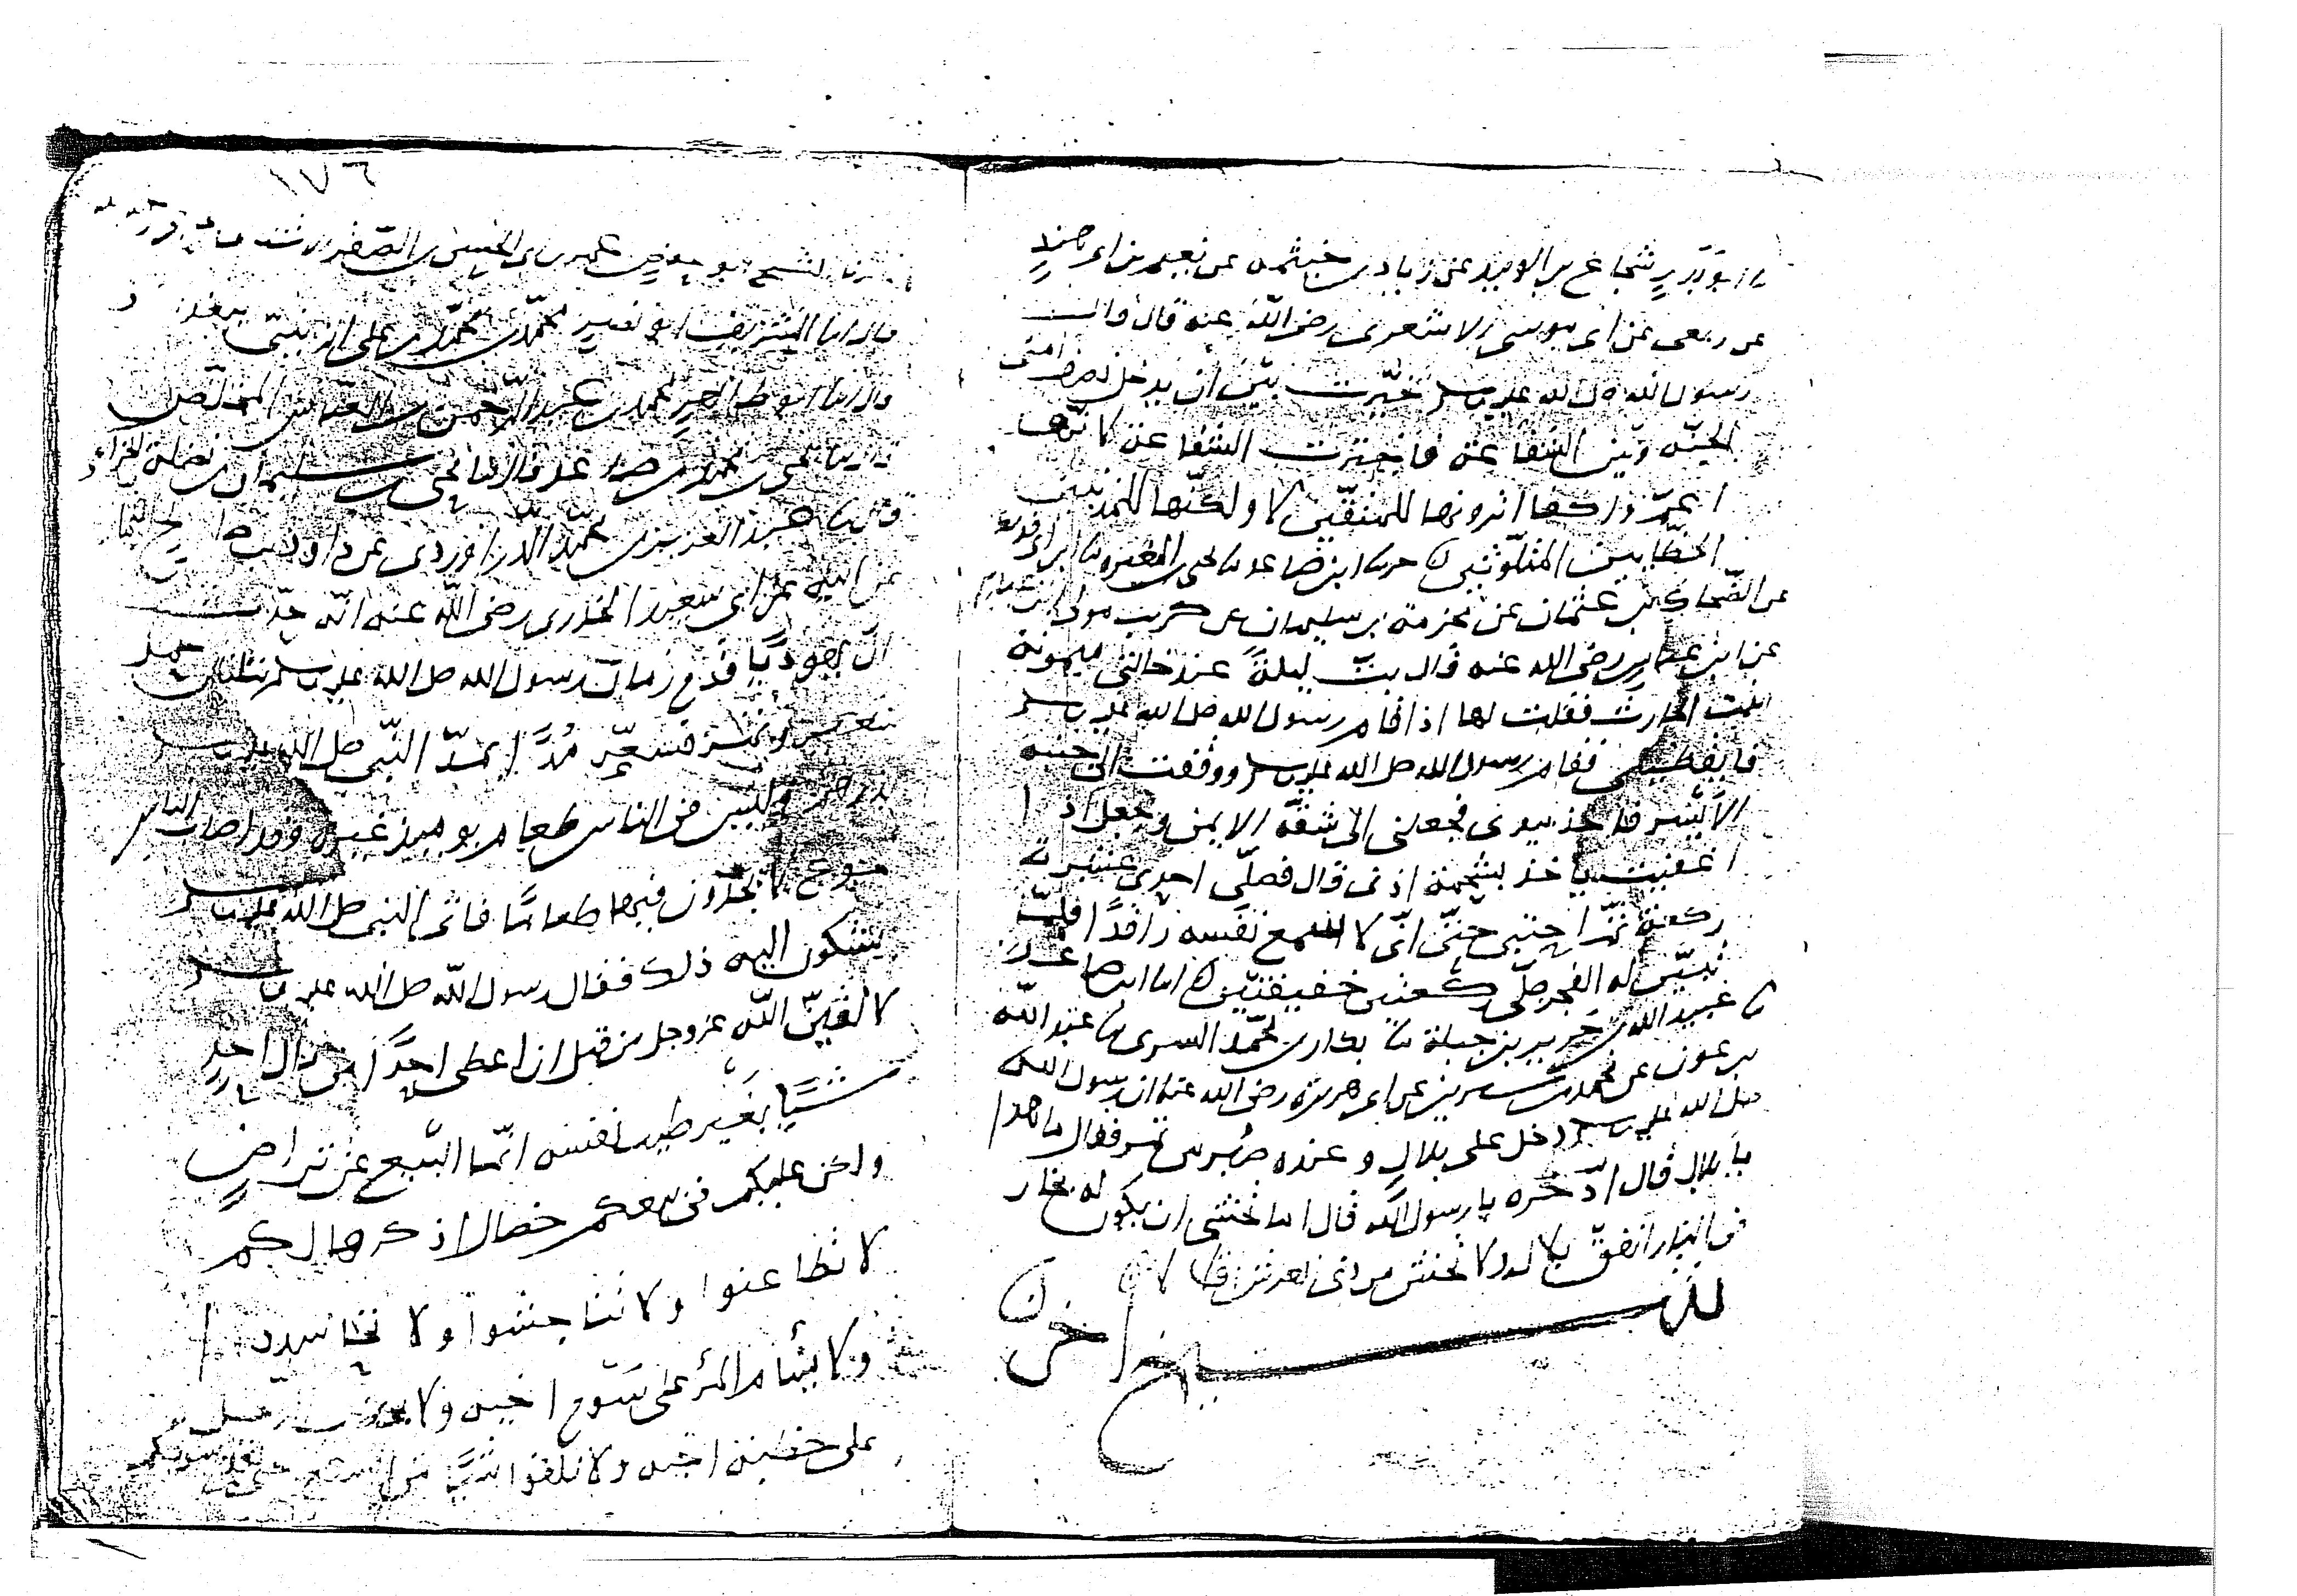 ابو بدر شجاع بن الوليد عن زياد بن خيثمه عن نعيم بن ابى هند
عن ربعى عن ابى موسى الاشعرى رضى الله عنه قال قال
رسول الله صلى الله عليه وسلم خيّرت بين ان يدخل نصف امتى
الجنّه وبين الشفاعة فاخترت الشفاعة لانّها
اعمّ واكفا اترونها للمتقّين لا ولكنّها للمذنبين
الخطّايين المتلّوثين حدثنا ابن صاعد نا يحيى بن المغيره نا ابن ابى فديك
عن الضّحاك بن عثمان عن مخرمة بن سليمان عن كريب مولى ابن عباس
عن ابن عباس رضى الله عنه قال بتّ ليلةً عند خالتى ميمونة
ابنت الحارث فقلت لها اذا قام رسول الله صلى الله عليه وسلم
فايقظينى فقام رسول الله صلى الله عليه وسلم ووقفت الى جنبه
الأيسر فاخذ بيدى فجعلنى الى شقّه الايمن وجعل اذا
اغفيت ياخذ بشحمة اذنى قال فصلّى احدى عشرة
ركعة ثمّ احتبى حتّى انّى لاسمع نفسه راقدًا فلمّا
تبيّن له الفجر صلّى ركعتين خفيفتين
نا عبيد الله بن جرير بن جبلة نا بكار بن محمّد السيرينى نا عبد الله
بن عون عن محمد بن سيرين عن ابى هريرة رضى الله عنه ان رسول الله
صلى الله عليه وسلم دخل على بلال وعنده صُبر من تمر فقال ما هذا
يا بلال قال ادّخره يا رسول الله قال اما تخشى ان يكون له بخار
فى النار انفق بلال ولا تخش من ذى العرش اقلالا
اخر
١٧٦
الشيخ ابو حفص عمر بن
قال انا الشريف ابو نصر محمّد بن محمّد بن على الزينبّى ببغداد
قال انا ابو طاهر محمد بن عبد الرّحمن بن العبّاس المخلّص
نا يحيى بن محمّد بن صاعد قال نا يحيى بن سليمان بن نضلة الخزاعى
قال نا عبد العزيز بن محمّد الدّراوردى عن داود بن صالح التمار
عن ابيه عن ابى سعيد الخدرى رضى الله عنه انّه حدّث
انّ يهوديًا قدم زمان رسول الله صلى الله عليه وسلم بثلاثين حمل
شعير وتمر فسعّر مُدًّا بمدّ النّبى صلى الله عليه وسلم
بدرهم وليس فى الناس طعام يوميذ غيره وقد اصاب الناس
جوع لا يجدون فيها طعامًا فاتى النبى صلى الله عليه وسلم
يشكون اليه ذلك فقال رسول الله صلى الله عليه وسلم
لالقينّ الله عز وجل من قبل ان اعطى احدًا من مال احدٍ
شيًا بغير طيب نفسه انّما البّيع عن تراضٍ
ولكن عليكم فى بيعكم خصالا اذكرها لكم
لا تظاعنوا ولا تناجشوا ولا تحاسدوا
ولا يسام المرء على سَوم اخيه ولا
على خطبة اخيه ولا تلقوا شيًا من البيع حتى يقدم سوقكم